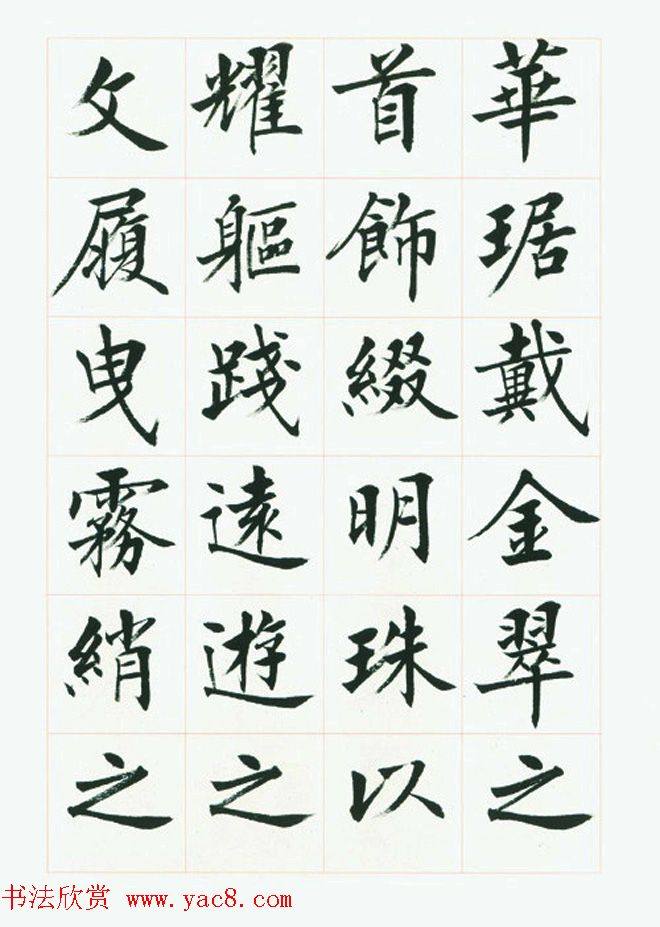 華琚戴金翠之
首飾綴明珠以
耀軀踐遠遊之
文履曳霧綃之
书法欣赏 www.yac8.com